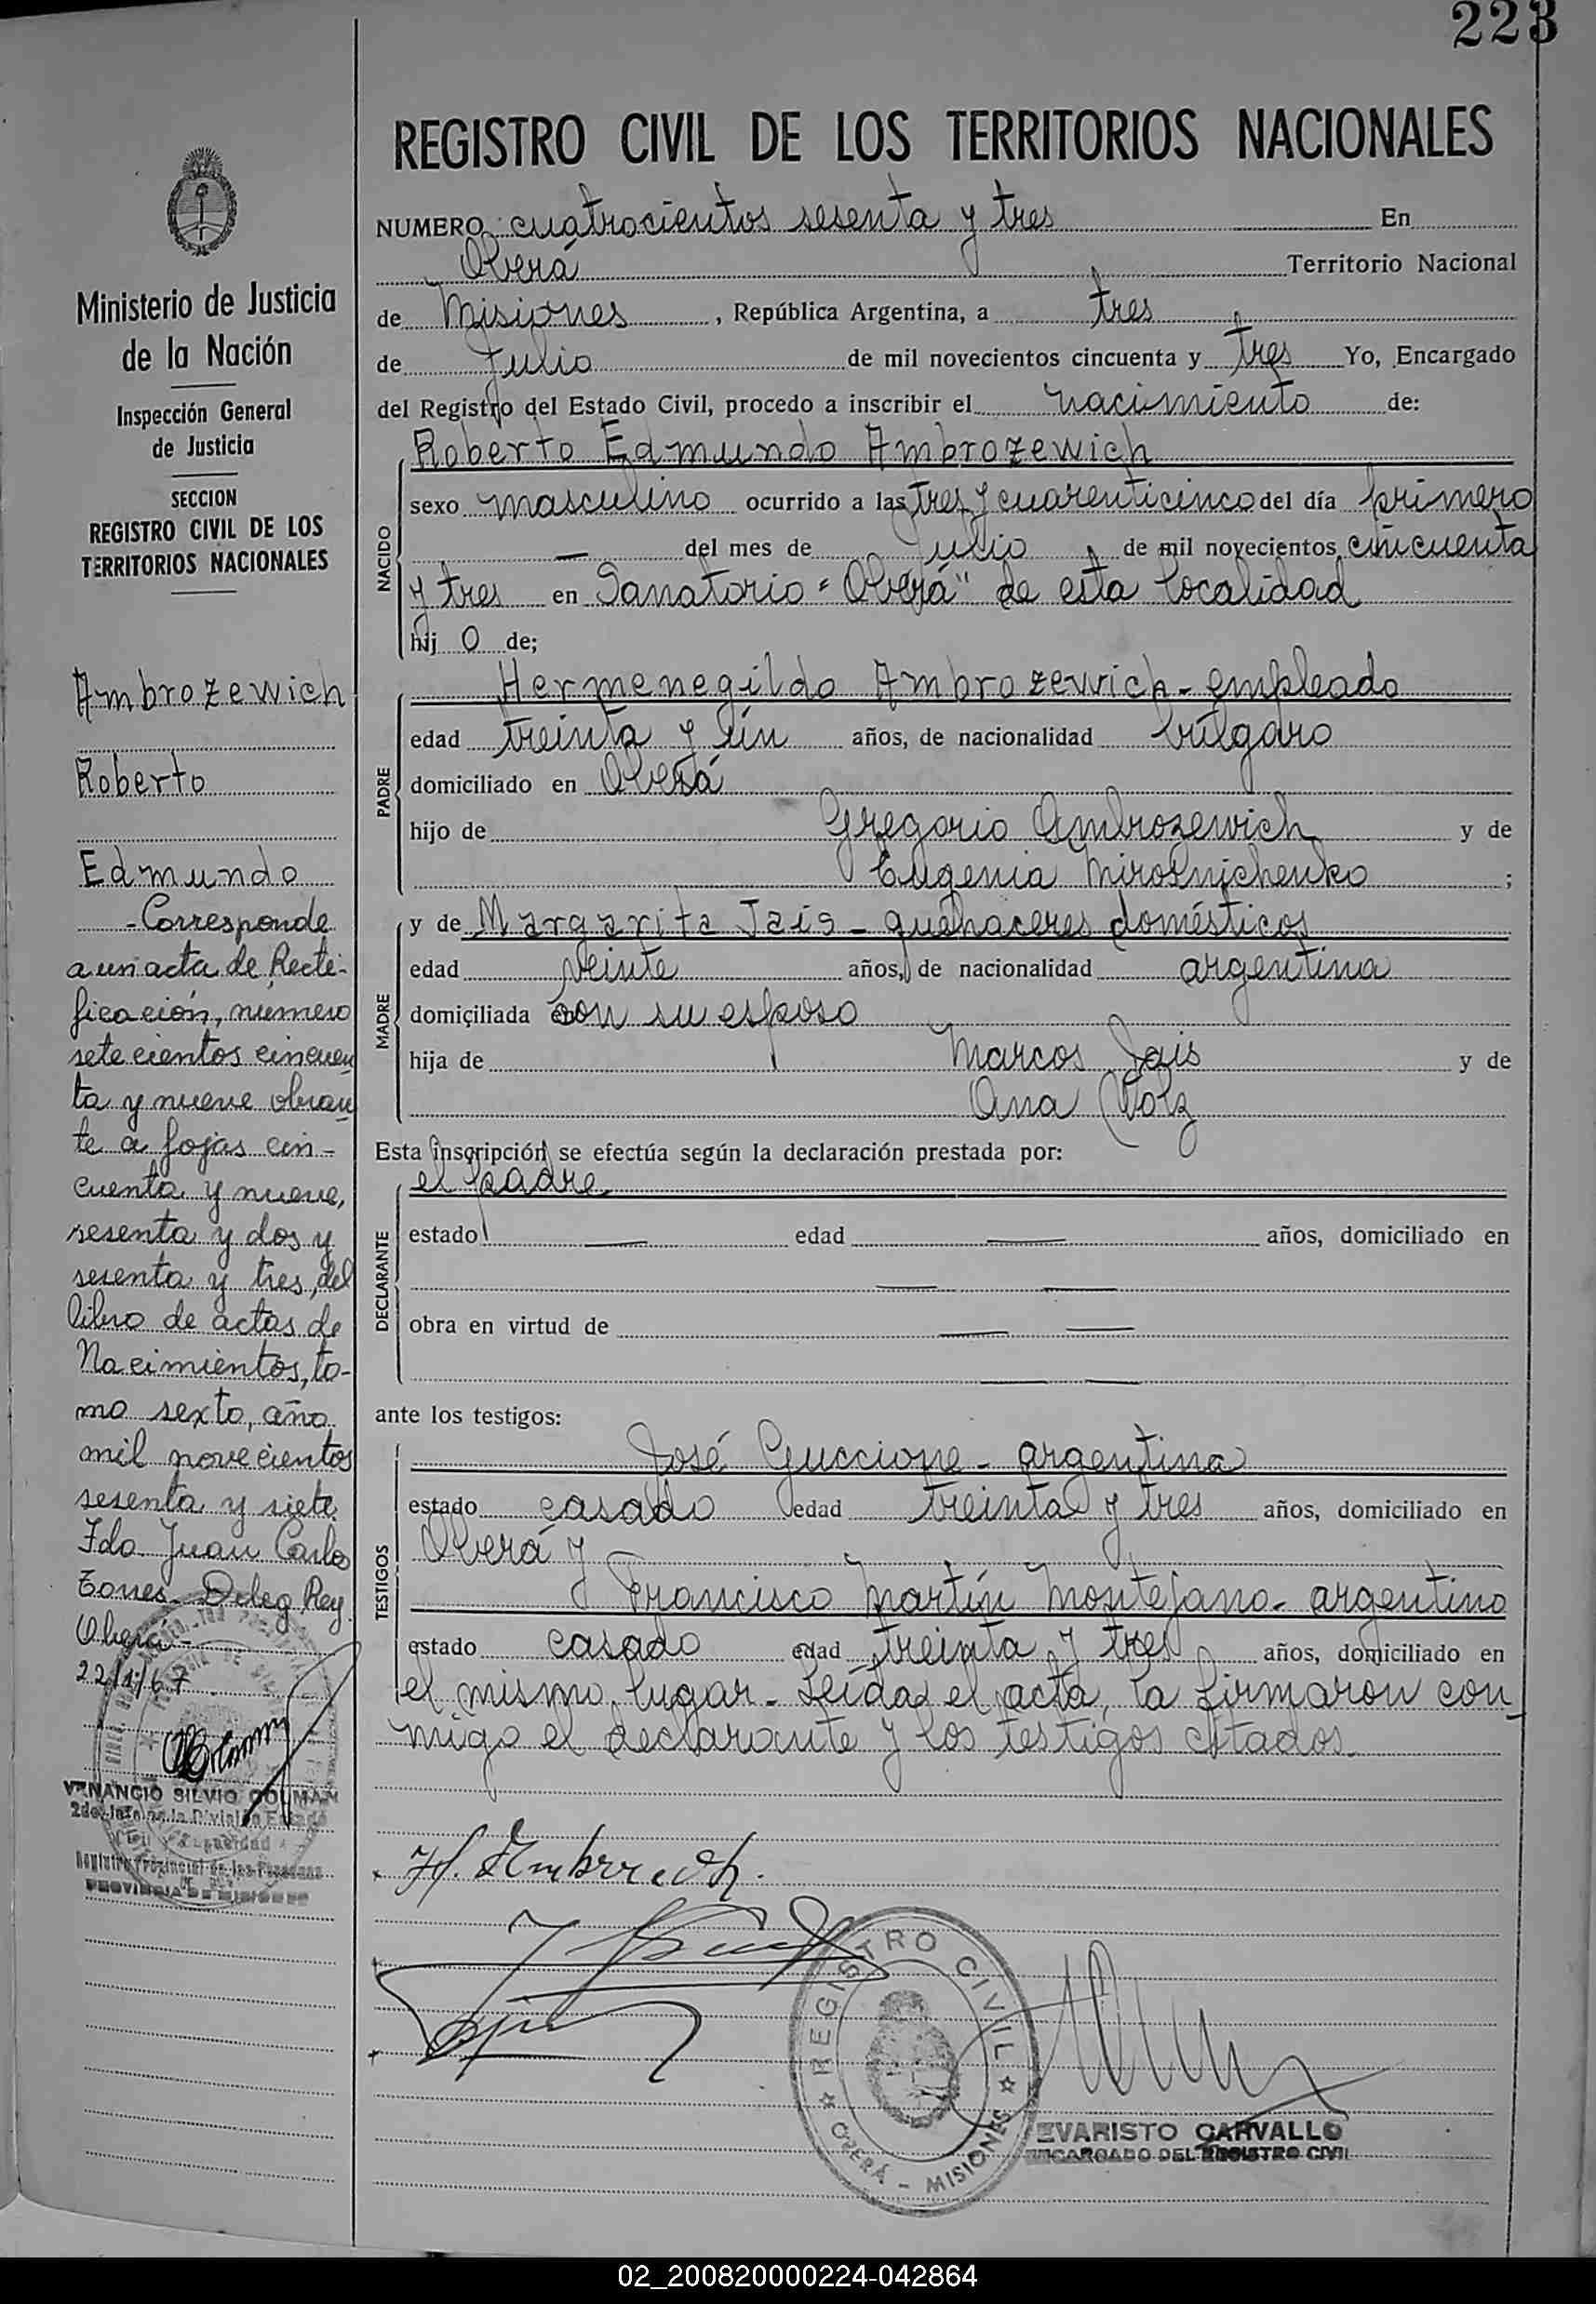 223
REGISTRO CIVIL DE LOS TERRITORIOS NACIONALES
NUMERO cuatrocientos sesenta y tres En
Oberá Territorio Nacional
de Misiones, República Argentina, a tres
de Julio de mil novecientos cincuenta y tres Yo, Encargado
del Registro del Estado Civil, procedo a inscribir el nacimiento de:
Roberto Edmundo Ambrozewich
NACIDO
sexo masculino ocurrido a las tres y cuarenticinco del día primero
— del mes de Julio de mil novecientos cincuenta
y tres en Sanatorio "Oberá" de esta localidad
hij o de;
PADRE
Hermenegildo Ambrozewich - empleado
edad treinta y ún años, de nacionalidad búlgaro
domiciliado en Oberá
hijo de Gregorio Ambrozewich y de
Eugenia Mirosnichenko ;
MADRE
y de Margarita Jais - quehaceres domésticos
edad veinte años, de nacionalidad argentina
domiciliada con su esposo
hija de Marcos Jais y de
Ana Volz
Esta inscripción se efectúa según la declaración prestada por:
el padre
DECLARANTE
estado — edad — años, domiciliado en
— —
obra en virtud de — —
— —
ante los testigos:
TESTIGOS
José Guccione - argentina
estado casado edad treinta y tres años, domiciliado en
Oberá y
Francisco Martín Montejano - argentino
estado casado edad treinta y tres años, domiciliado en
el mismo lugar - Leída el acta, la firmaron con-
migo el declarante y los testigos citados.
REGISTRO CIVIL
OBERÁ - MISIONES
EVARISTO CARVALLO
ENCARGADO DEL REGISTRO CIVIL
Ministerio de Justicia
de la Nación
Inspección General
de Justicia
SECCION
REGISTRO CIVIL DE LOS
TERRITORIOS NACIONALES
Ambrozewich
Roberto
Edmundo
- Corresponde
a un acta de Recti-
ficación, número
setecientos cincuen
ta y nueve obran
te a fojas cin-
cuenta y nueve,
sesenta y dos y
sesenta y tres, del
libro de actas de
Nacimientos, to-
mo sexto, año
mil novecientos
sesenta y siete.
Fdo Juan Carlos
Torres - Deleg Reg.
Oberá -
22/1/67
VENANCIO SILVIO COLMAN
Registro Provincial de las Personas
PROVINCIA DE MISIONES
02_200820000224-042864